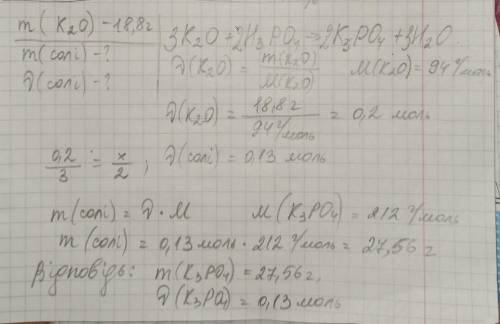 m(K2O) - 18,8г
m(солі) - ?
ν(солі) - ?
3K2O + 2H3PO4 → 2K3PO4 + 3H2O
ν(K2O) = m(K2O)/M(K2O) M(K2O) = 94 г/моль
ν(K2O) = 18,8 г/94 г/моль = 0,2 моль
0,2/3 = x/2 ; ν(солі) = 0,13 моль
m(солі) = ν · M M(K3PO4) = 212 г/моль
m(солі) = 0,13 моль · 212 г/моль = 27,56 г
Відповідь: m(K3PO4) = 27,56 г,
ν(K3PO4) = 0,13 моль